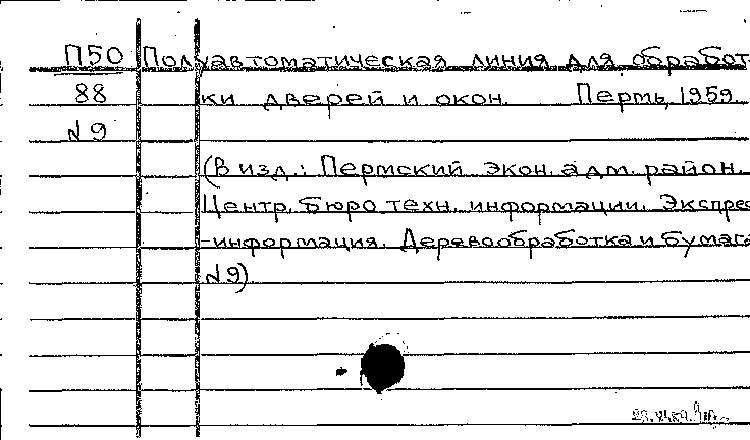 П50 Полуавтоматическая линия для обработ
88 ки дверей и окон. Пермь, 1959.
№9
(В изд.: Пермский экон. адм. район.
Центр. бюро техн. информации. Экспрес
-информация. Деревообработка и бумага
№9)